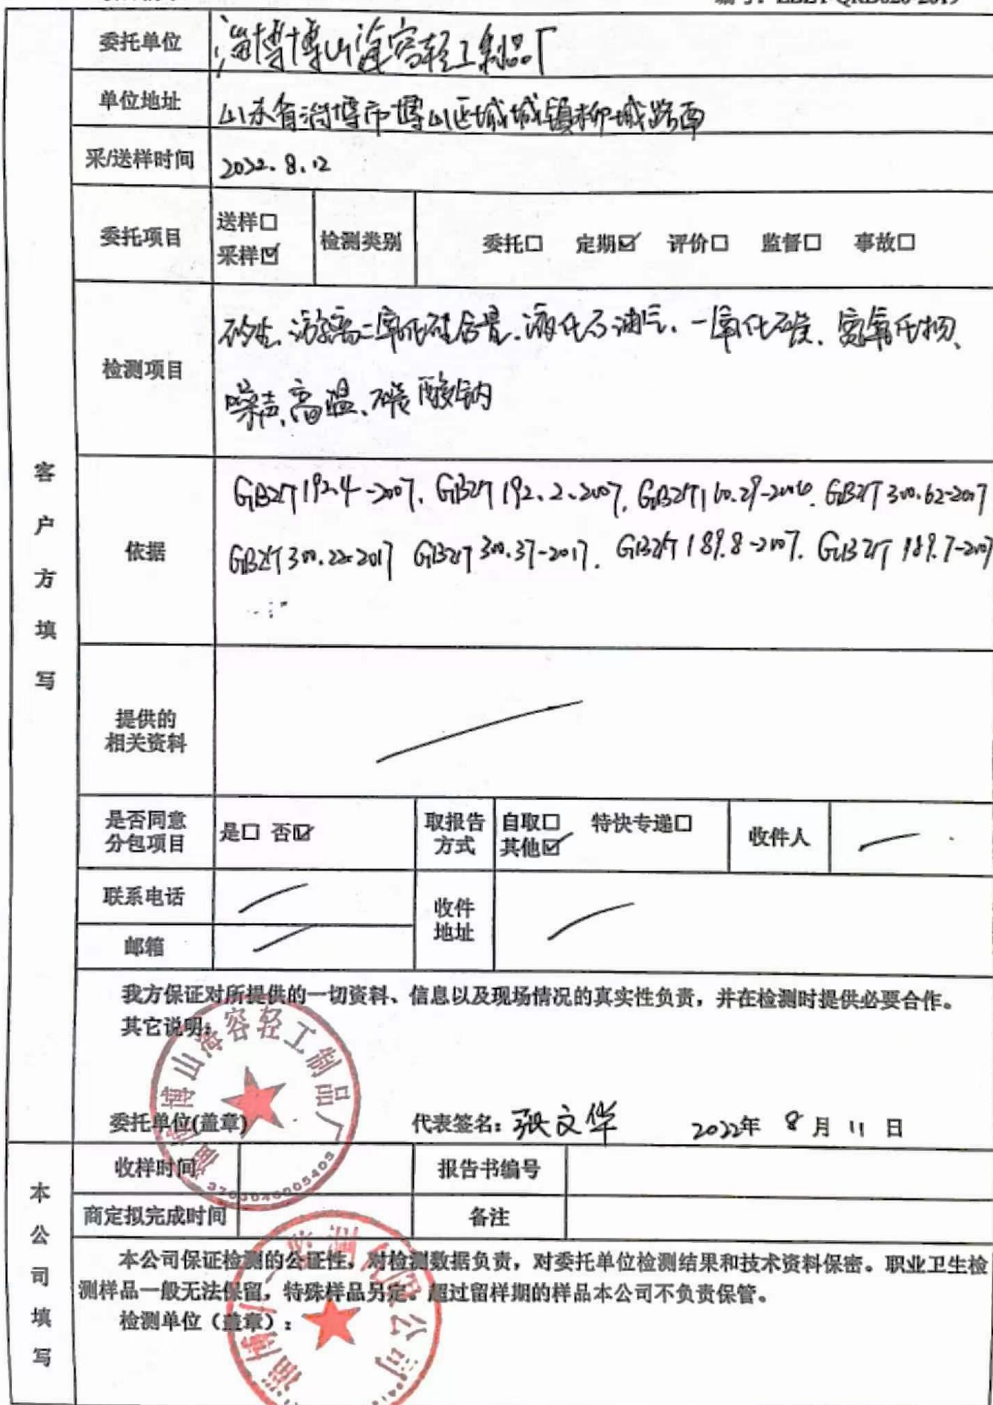 委托单位 淄博博山海容轻工制品厂
单位地址 山东省淄博市博山区域城镇柳域路西
采/送样时间 2022.8.12
委托项目 送样□ 采样☑ 检测类别 委托□ 定期☑ 评价□ 监督□ 事故□
检测项目 矽尘、游离二氧化硅含量、液化石油气、一氧化碳、氮氧化物、
噪声、高温、碳酸钠
客户方填写
依据 GBZ/T 192.4-2007、GBZ/T 192.2-2007、GBZ/T 160.29-2004、GBZ/T 300.62-2017
GBZ/T 300.22-2017 GBZ/T 300.37-2017、GBZ/T 189.8-2007、GBZ/T 189.7-2007
提供的
相关资料
是否同意
分包项目 是□ 否☑ 取报告
方式 自取□ 特快专递□
其他☑ 收件人
联系电话 收件
地址
邮箱
我方保证对所提供的一切资料、信息以及现场情况的真实性负责，并在检测时提供必要合作。
其它说明：
淄博博山海容轻工制品厂
委托单位(盖章) 代表签名：张文华 2022年 8月 11日
本公司填写
收样时间 报告书编号
商定拟完成时间 备注
本公司保证检测的公证性，对检测数据负责，对委托单位检测结果和技术资料保密。职业卫生检
测样品一般无法保留，特殊样品另定。超过留样期的样品本公司不负责保管。
检测单位（盖章）：